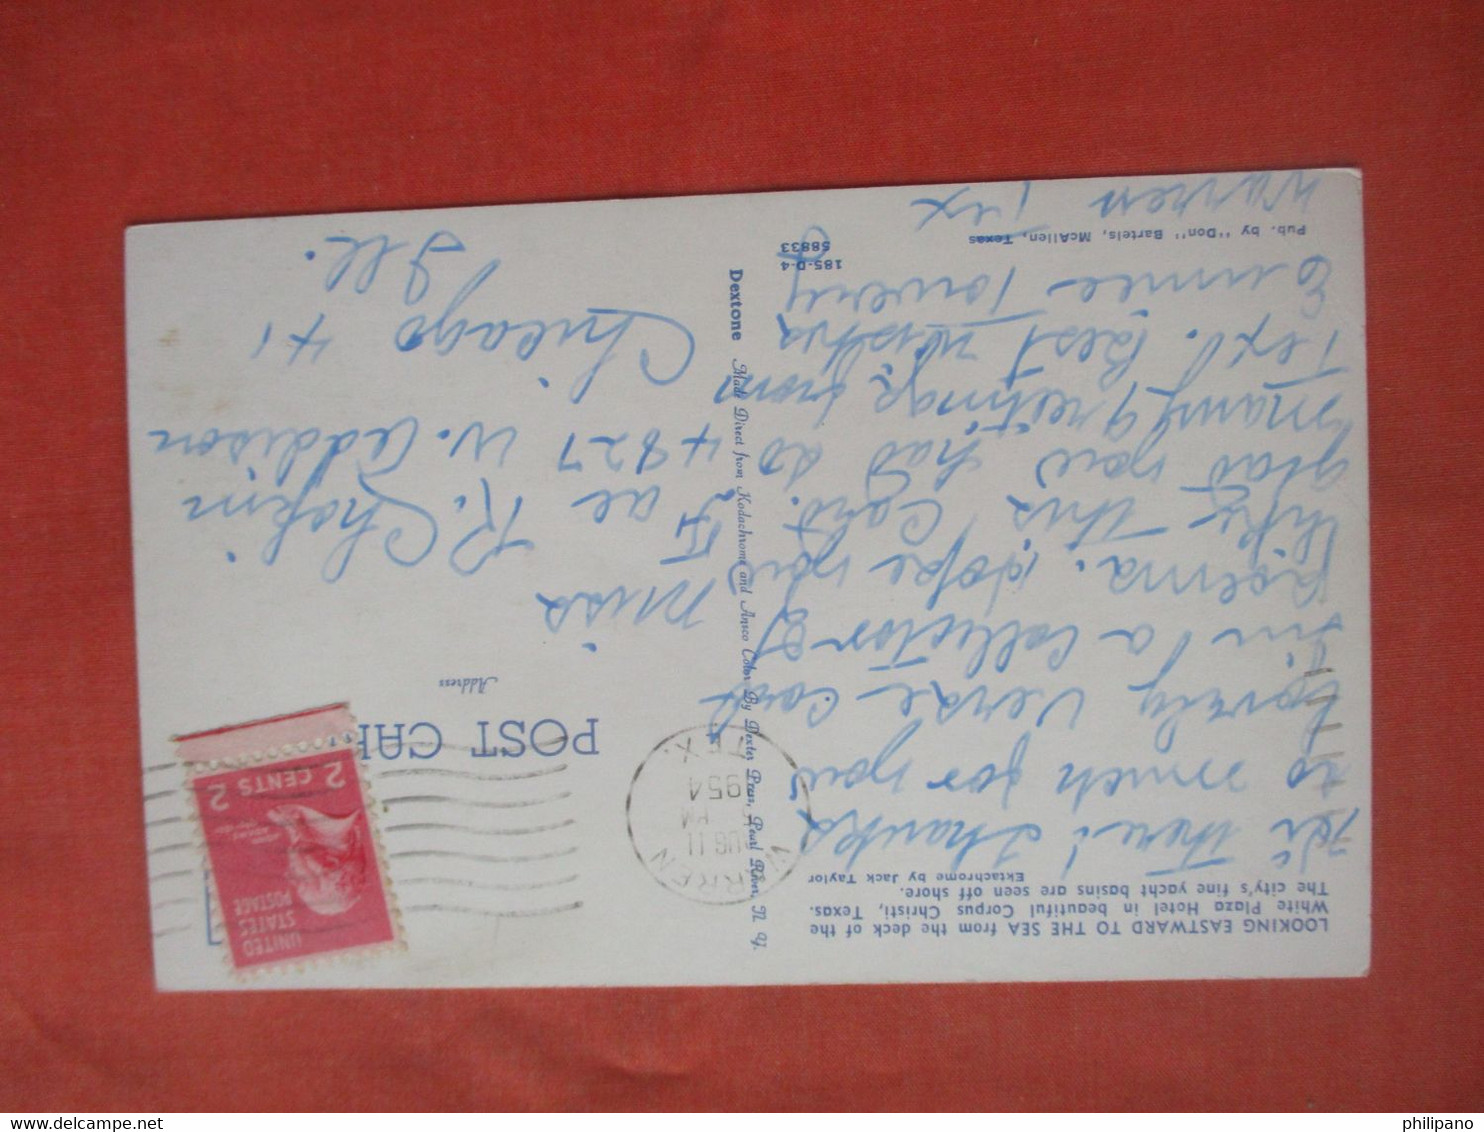 LOOKING EASTWARD TO THE SEA from the deck of the
White Plaza Hotel in beautiful Corpus Christi, Texas.
The city's fine yacht basins are seen off shore.
Ektachrome by Jack Taylor
Hi There! Thanks
so much for your
Lovely verse card
I'm a collector of
Poems. Hope you
like this Card. so
glad you had so
many greetings from
Tex. Best wishes
Eunice Towery
Warren Tex
Pub. by "Don" Bartels, McAllen, Texas
185-D-4
58833
Dextone Made Direct from Kodachrome and Ansco Color By Dexter Press, Pearl River, N. Y.
WARREN
AUG 11
5 PM
1954
TEX.
POST CAR
Address
UNITED
STATES
POSTAGE
2 CENTS 2
Miss
Fae R. Chekin
4827 W. Addison
Chicago 41
Ill.
philipano
delcampe.net